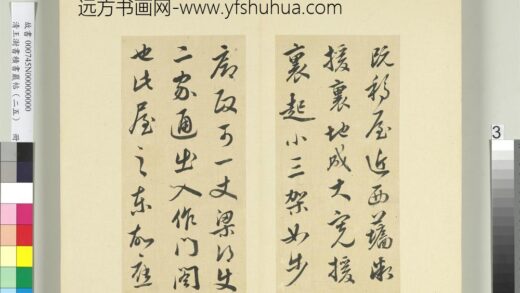 远方书画网-www.yfshuhua.com
故書 000745N00000000
清王澍書積書巖帖(二五) 冊
既移屋近西藩漸
援裏地成大寬援
裏起小三架如步
廊政可一丈梁
二家通出入作門閤
也此屋之東如應
3